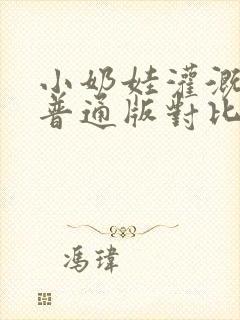 小奶娃灌溉
普通版對比
馮瑋